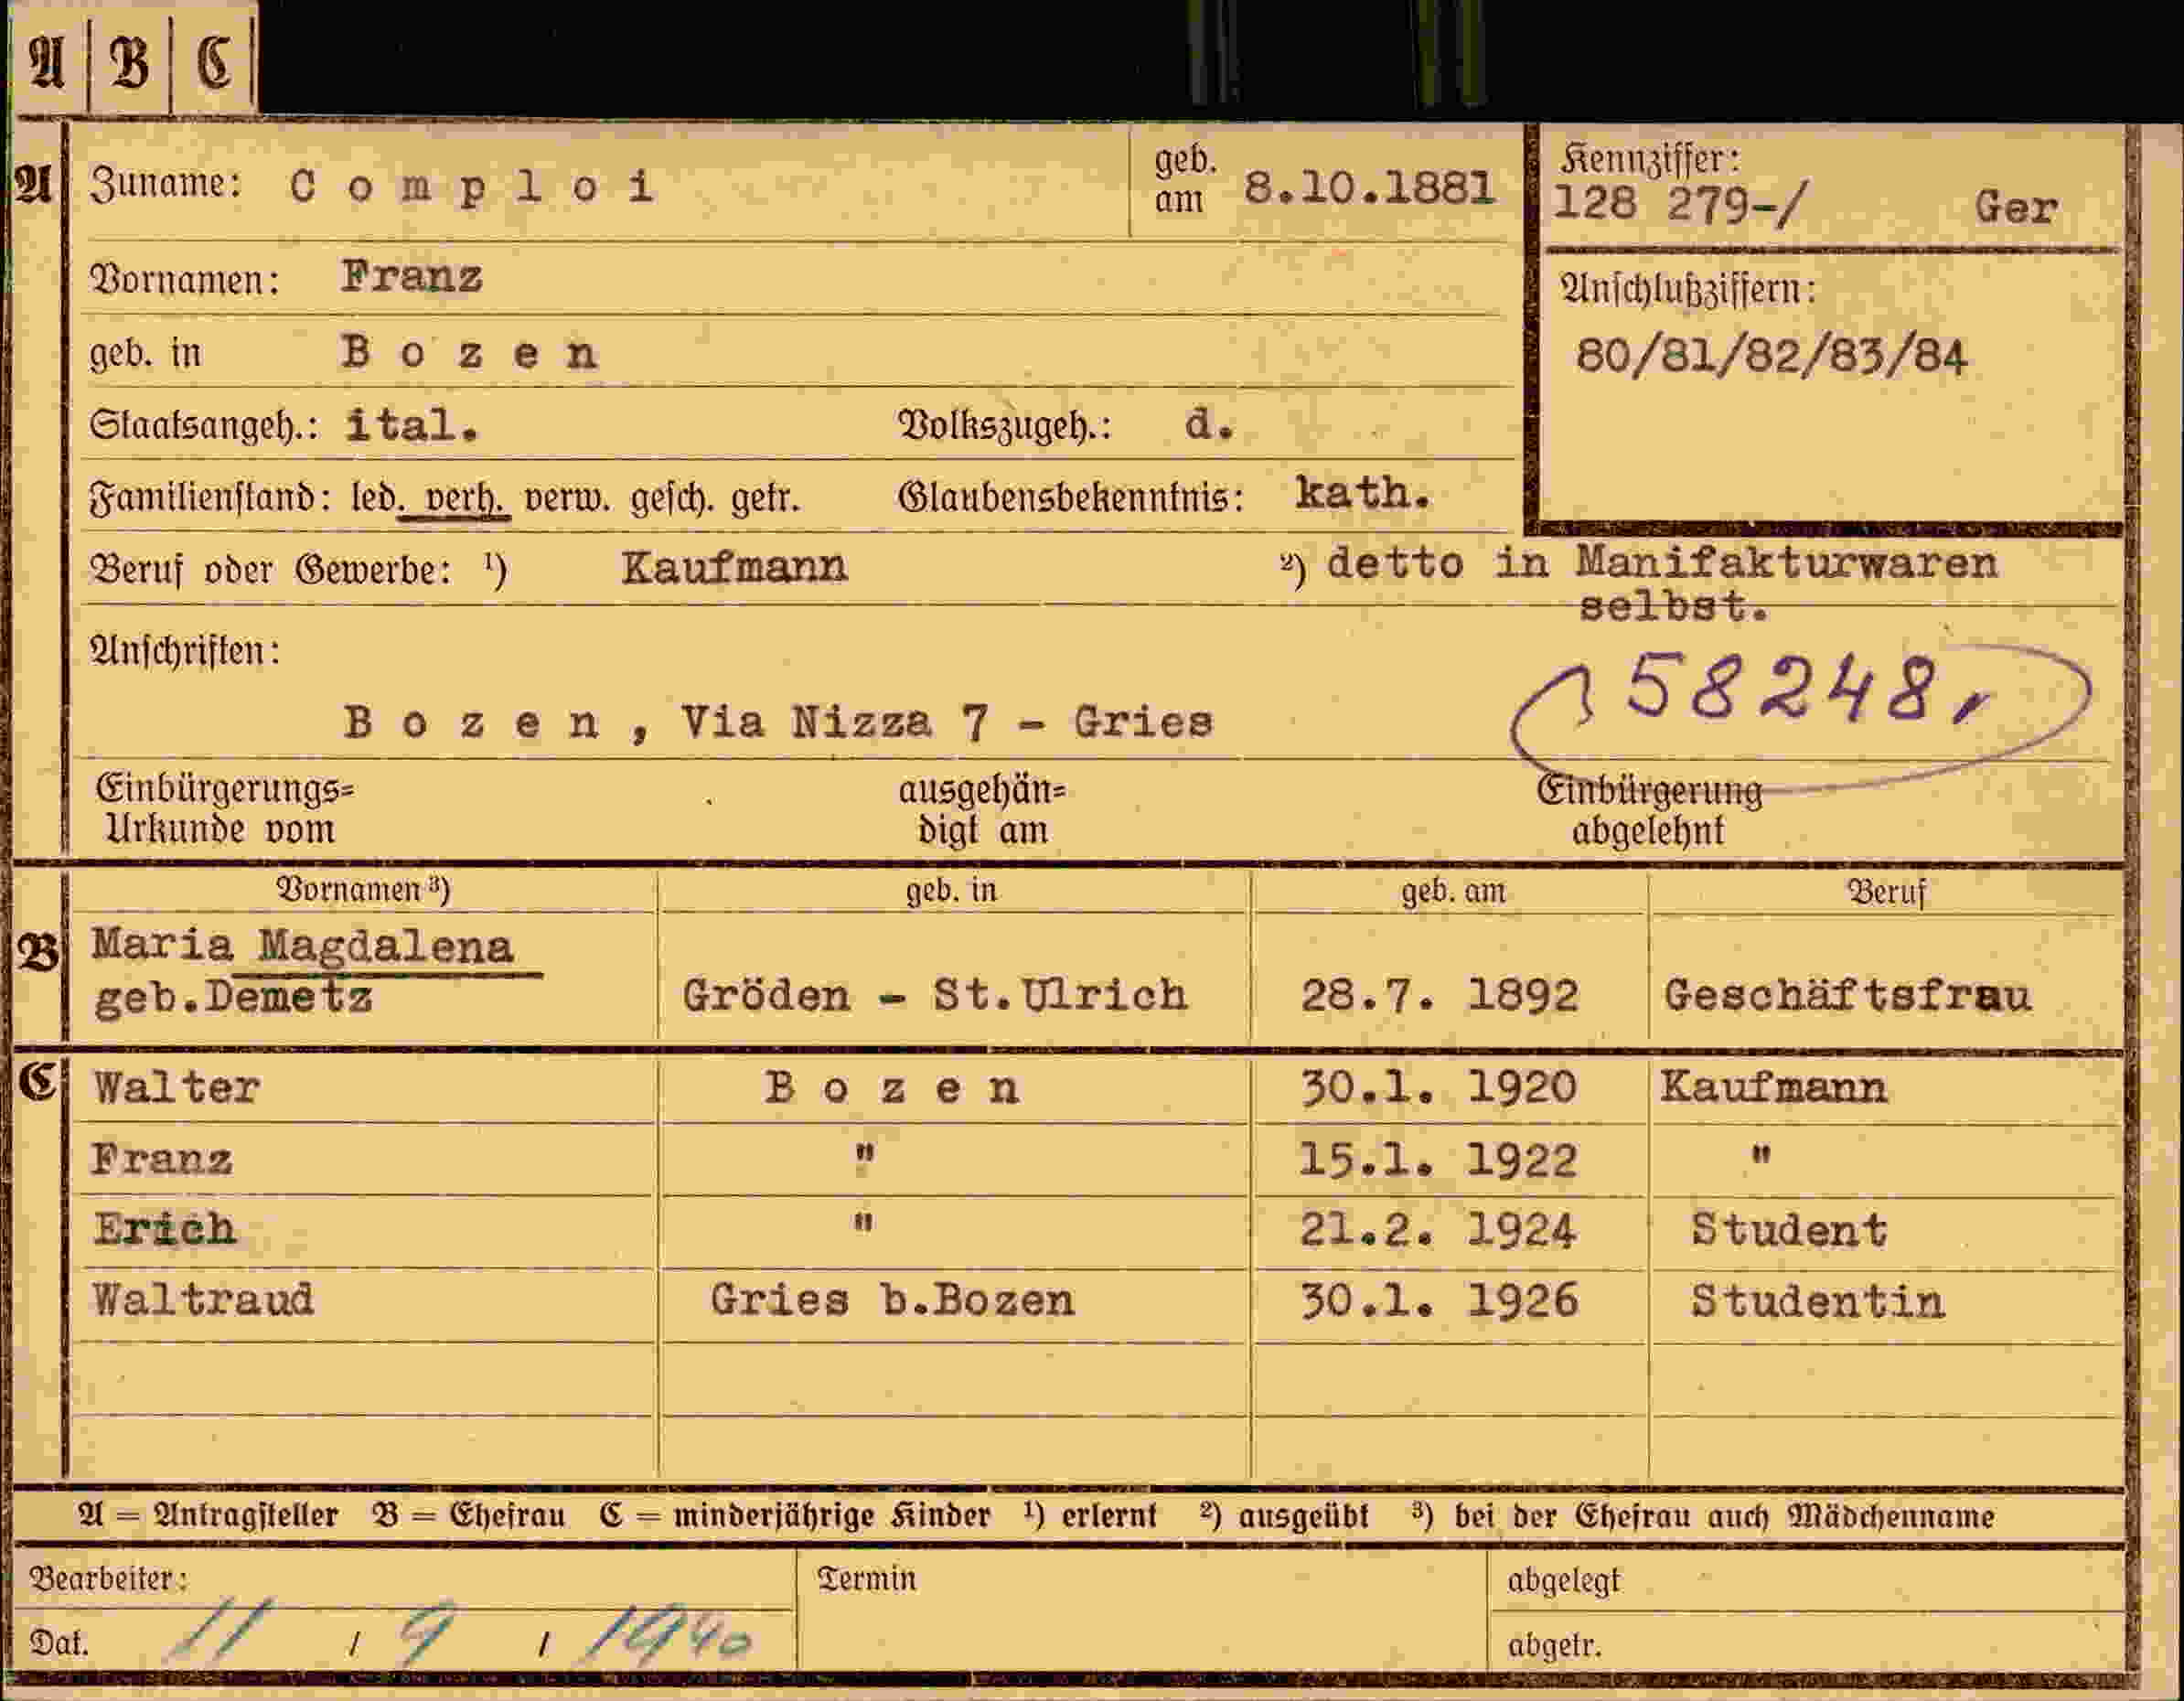 A B C
A Zuname: Comploi geb. am 8.10.1881
Kennziffer:
128 279-/ Ger
Vornamen: Franz
Anschlußziffern:
80/81/82/83/84
geb. in Bozen
Staatsangeh.: ital. Volkszugeh.: d.
Familienstand: led. verh. verw. gesch. getr. Glaubensbekenntnis: kath.
Beruf oder Gewerbe: ¹) Kaufmann ²) detto in Manifakturwaren
selbst.
Anschriften:
58248
Bozen, Via Nizza 7 - Gries
Einbürgerungs= ausgehän= Einbürgerung
Urkunde vom digt am abgelehnt
Vornamen ³) geb. in geb. am Beruf
B Maria Magdalena
geb.Demetz Gröden - St.Ulrich 28.7. 1892 Geschäftsfrau
C Walter Bozen 30.1. 1920 Kaufmann
Franz " 15.1. 1922 "
Erich " 21.2. 1924 Student
Waltraud Gries b.Bozen 30.1. 1926 Studentin
A = Antragsteller B = Ehefrau C = minderjährige Kinder ¹) erlernt ²) ausgeübt ³) bei der Ehefrau auch Mädchenname
Bearbeiter: Termin abgelegt
Dat. 11 / 9 / 1940 abgetr.